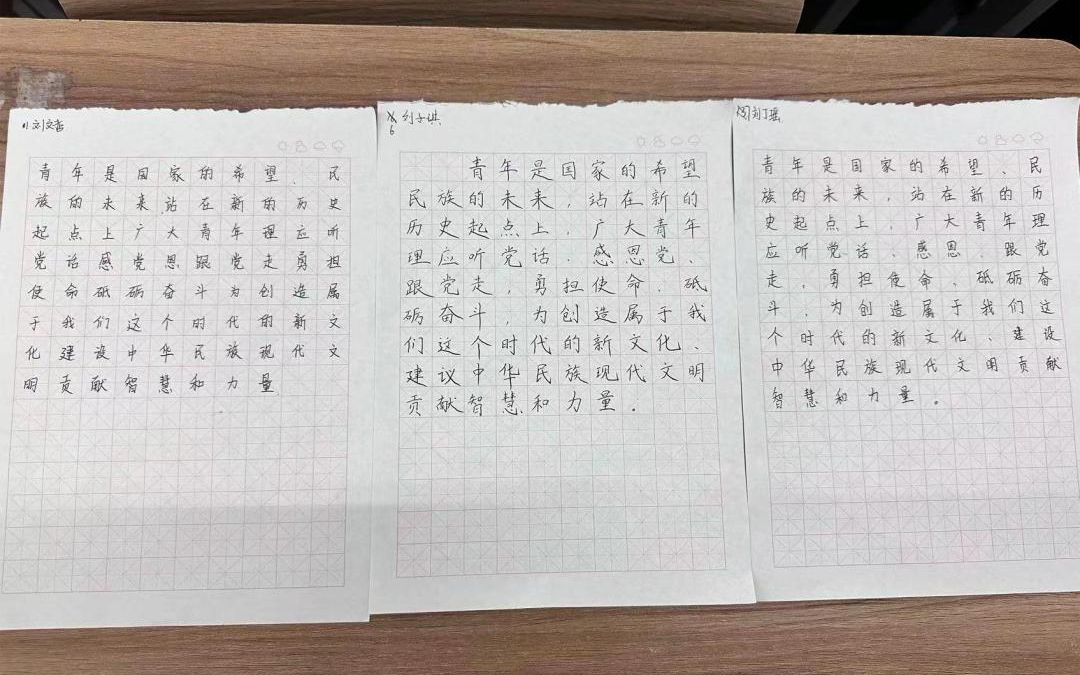 刘文杏
青年是国家的希望、民
族的未来,站在新的历史
起点上广大青年理应听
党话感党恩跟党走勇担
使命砥砺奋斗为创造属
于我们这个时代的新文
化建设中华民族现代文
明贡献智慧和力量
6
刘子琪
青年是国家的希望
民族的未来,站在新的
历史起点上,广大青年
理应听党话、感恩党、
跟党走,勇担使命、砥
砺奋斗,为创造属于我
们这个时代的新文化、
建议中华民族现代文明
贡献智慧和力量。
刘丁瑶
青年是国家的希望、民
族的未来,站在新的历
史起点上,广大青年理
应听党话、感恩、跟党
走,勇担使命、砥砺奋
斗,为创造属于我们这
个时代的新文化、建设
中华民族现代文明贡献
智慧和力量。